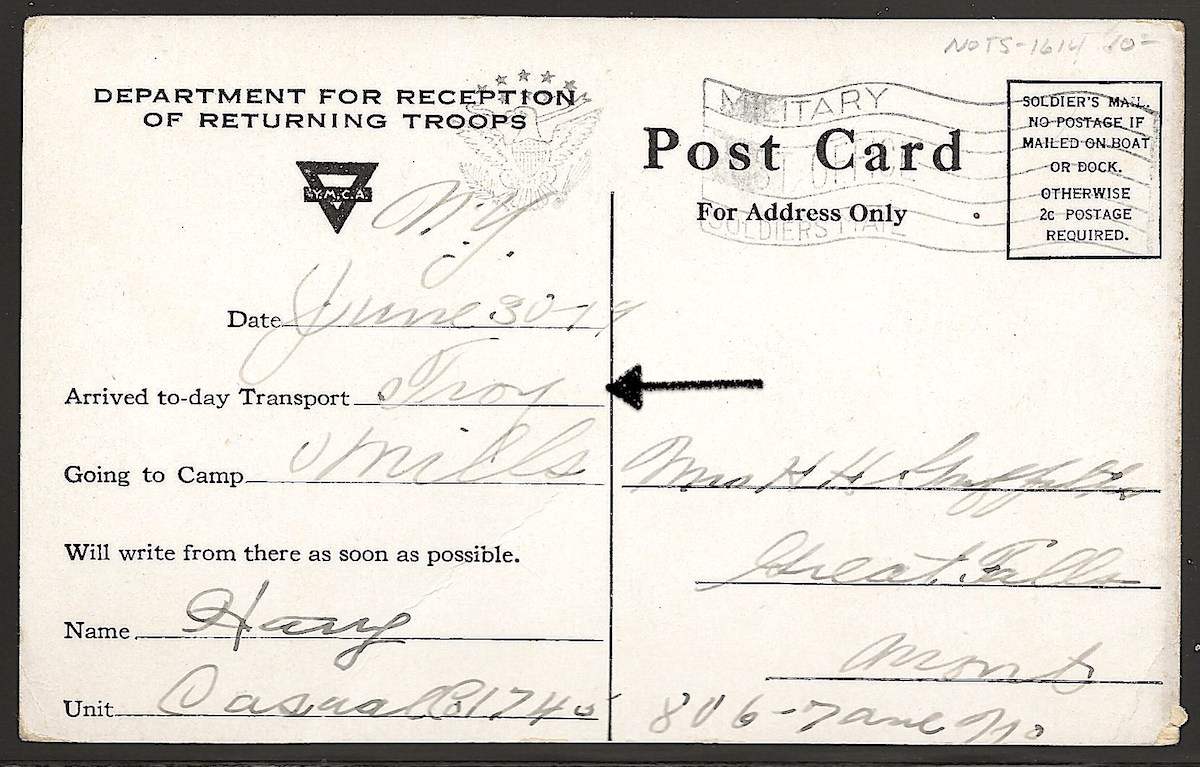 NOTS-1614 10-
DEPARTMENT FOR RECEPTION
OF RETURNING TROOPS
Y.M.C.A.
N.Y.
Date June 30-19
Arrived to-day Transport Troy
Going to Camp Mills
Will write from there as soon as possible.
Name Harry
Unit Casual 1740
MILITARY
POST OFFICE
SOLDIERS MAIL
Post Card
For Address Only
SOLDIER'S MAIL.
NO POSTAGE IF
MAILED ON BOAT
OR DOCK.
OTHERWISE
2c POSTAGE
REQUIRED.
Mrs H H
Great Falls
Mont
806-7 ave No